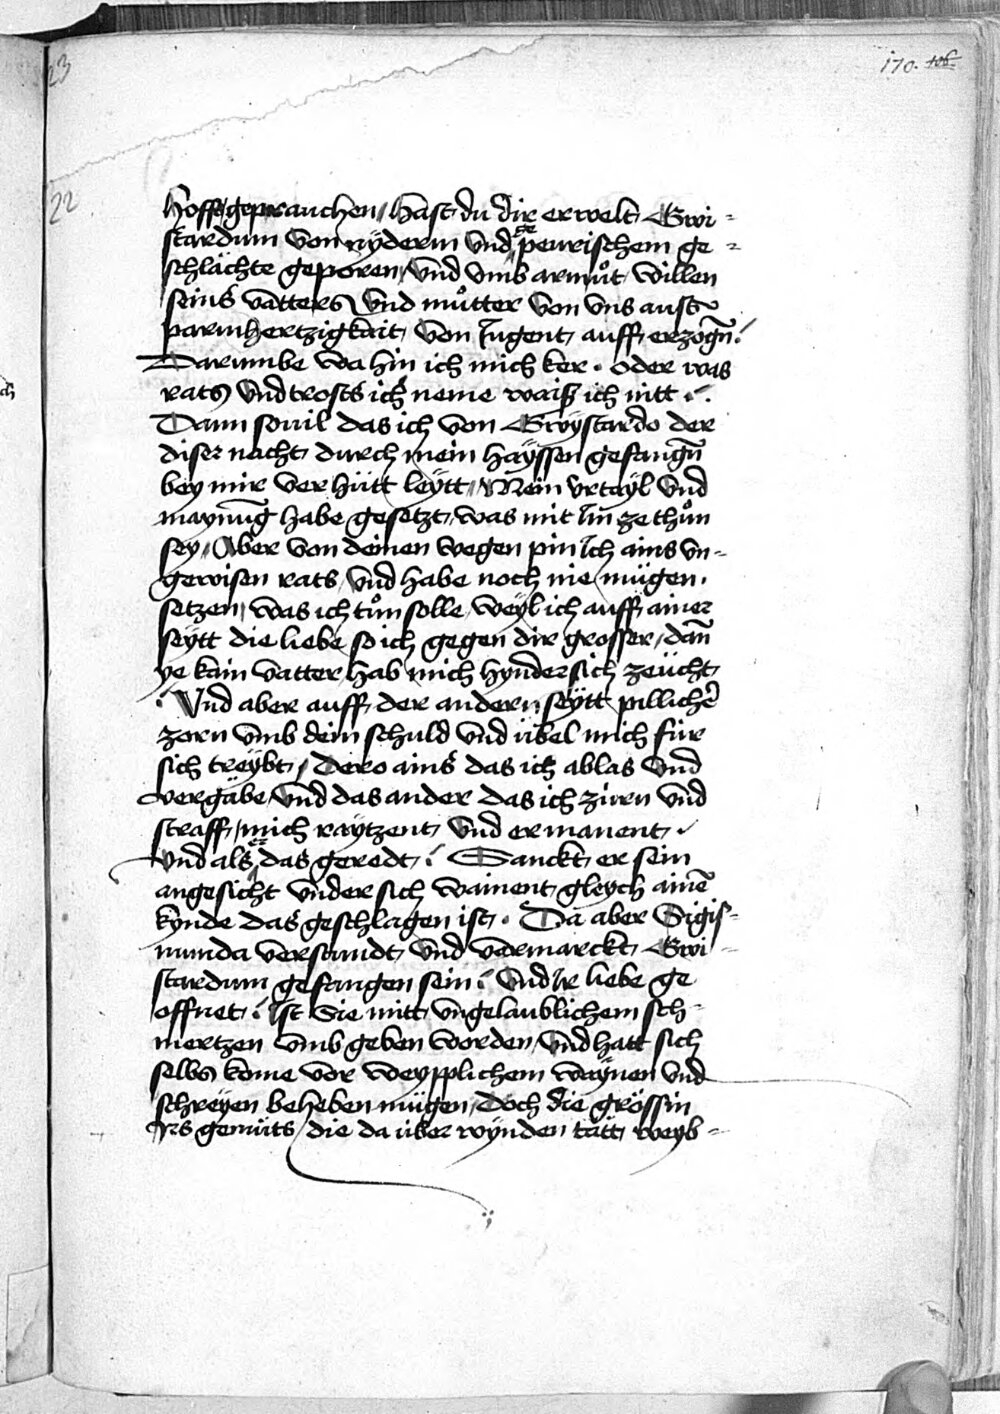 23
170. 106
22
hoff geprauchen / hast du dir erwelt Gwi-
stardum von nÿderm vnd peurischem ge-
schlächte geporen / vnd vmb armůt willen
seins vatters vnd můtter von vns auss
parmhertzigkait von Jugent auff erzogñ /
Darumbe wa hin ich mich ker . oder was
rats vnd trosts ich neme waiß ich nitt /.
Dann souil das ich von Gwÿstardo der
diser nacht durch mein haÿssen gefangñ
bey mir verhütt leÿtt / Mein vrtaÿl vnd
maynũg habe gesetzt / was mit Im ze thůn
sey / Aber von deinen wegen pin Ich ains vn-
gewisen rats / vnd habe noch nie mügen .
setzen / was ich tůn solle / weÿl ich auff ainer
seÿtt die liebe so ich gegen dir grosser / dañ
ye kain vatter hab mich hyndersich zeücht
. Vnd aber auff der andern seÿtt pillicher
zorn vmb dein schuld vnd übel mich für
sich treÿbt / Dero ains das ich ablas vnd
vergäbe / vnd das ander das ich zürn vnd
straff / mich raÿtzent vnd ermanent /
vnd als er das geredt / Sanckt er sein
angesicht vnder sich wainent gleych ainẽ
kynde das geschlagen ist . Da aber Sigis-
munda verstundt vnd vermarckt Gwi-
stardum gefangen sein / vnd Ir liebe ge
offnet / Ist Sie mitt vngelaublichem sch-
mertzen vmb geben worden / vnd hatt sich
selbs kome vor weypplichem waÿnen vnd
schreÿen beheben mügen / Doch die grössin
Irs gemüts / die da überwÿnden tätt weyb-